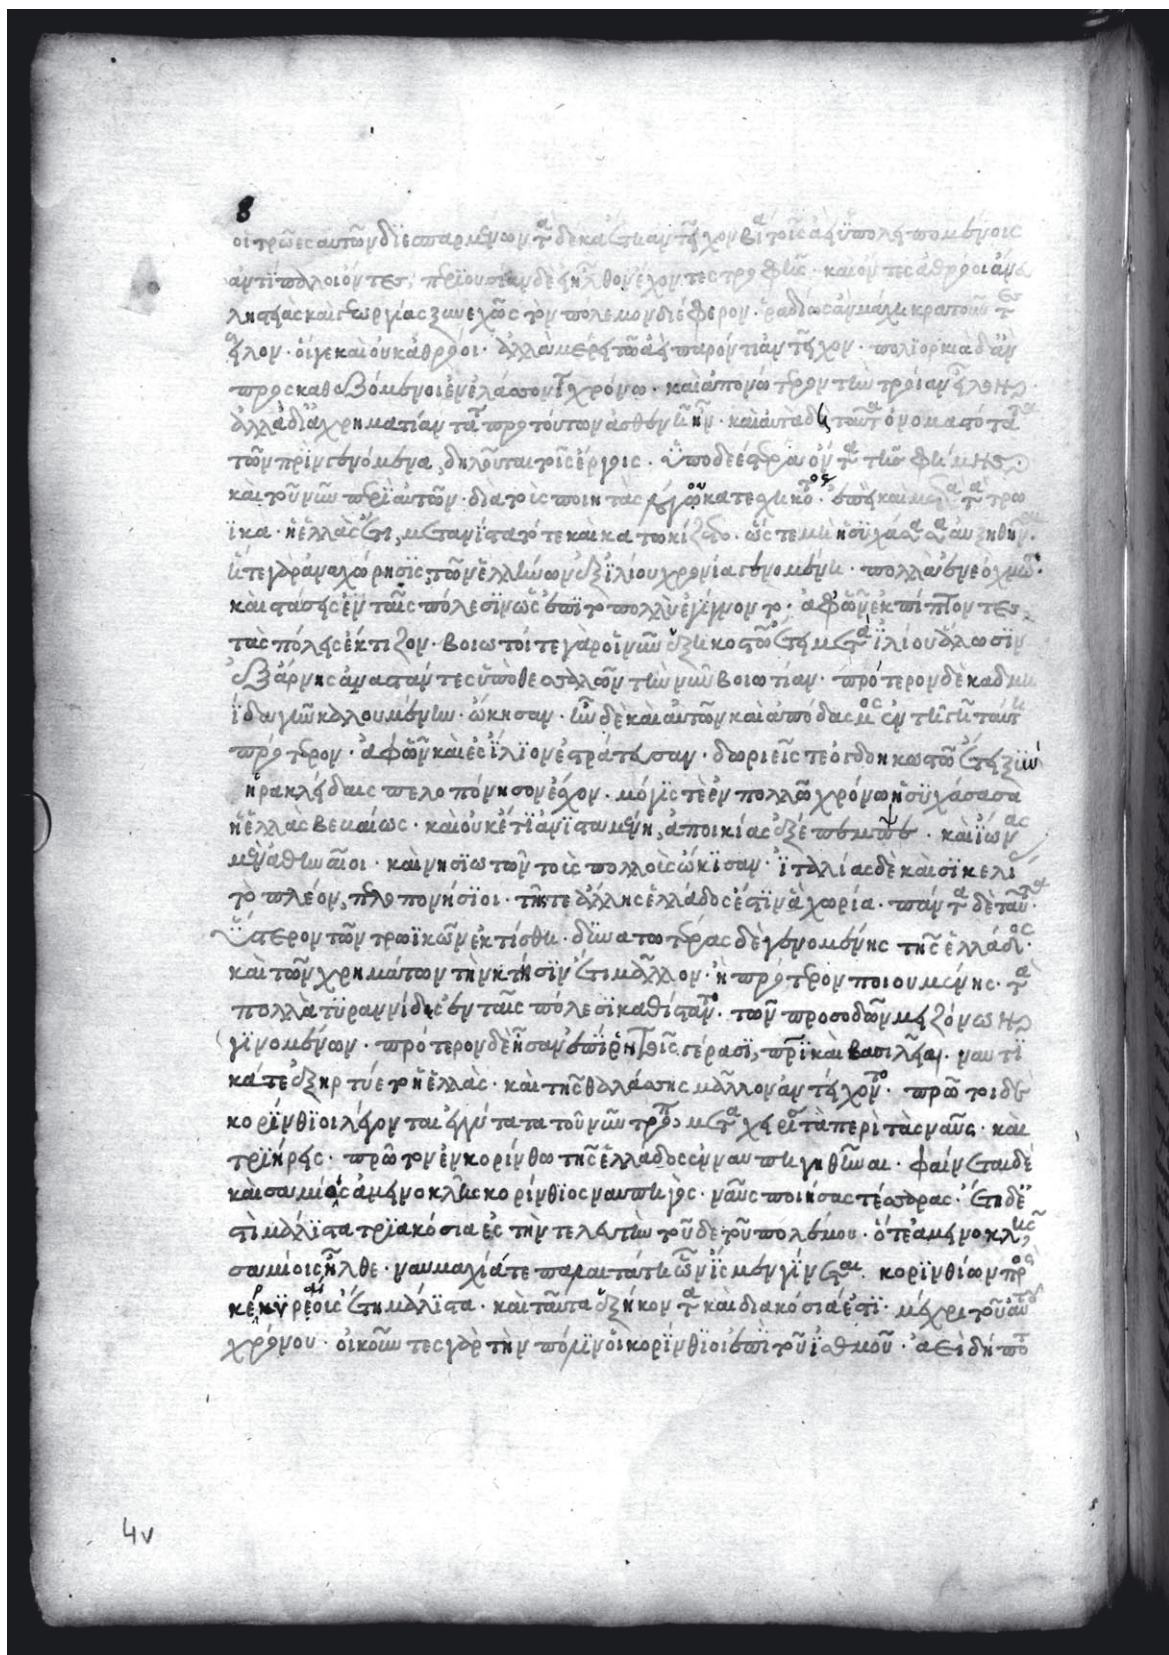 8
οἱ τρῶες αὐτῶν διεσπαρμένων τὰ δέκα ἔτη ἀντεῖχον βίᾳ τοῖς ἀεὶ ὑπολειπομένοις
ἀντίπαλοι ὄντες, περιουσίαν δὲ εἰ ἦλθον ἔχοντες τροφῆς· καὶ ὄντες ἀθρόοι ἄνευ
ληστείας καὶ γεωργίας ξυνεχῶς τὸν πόλεμον διέφερον· ῥᾳδίως ἂν μάχῃ κρατοῦντες
εἷλον· οἵ γε καὶ οὐκ ἀθρόοι· ἀλλὰ μέρει τῷ ἀεὶ παρόντι ἀντεῖχον· πολιορκίᾳ δ' ἂν
προσκαθεζόμενοι ἐν ἐλάσσονί τε χρόνῳ· καὶ ἀπονώτερον τὴν τροίαν εἷλον·
ἀλλὰ δι' ἀχρηματίαν τά τε πρὸ τούτων ἀσθενῆ ἦν· καὶ αὐτά γε δὴ ταῦτα ὀνομαστότατα
τῶν πρὶν γενόμενα, δηλοῦται τοῖς ἔργοις· ὑποδεέστερα ὄντα τῆς φήμης
καὶ τοῦ νῦν περὶ αὐτῶν· διὰ τοὺς ποιητὰς λόγου κατεσχηκότος· ἐπεὶ καὶ μετὰ τὰ τρω
ϊκὰ· ἡ ἑλλὰς ἔτι, μετανίστατό τε καὶ κατῳκίζετο· ὥστε μὴ ἡσυχάσασα αὐξηθῆναι·
ἥ τε γὰρ ἀναχώρησις, τῶν ἑλλήνων ἐξ ἰλίου χρονία γενομένη· πολλὰ ἐνεόχμωσε·
καὶ στάσεις ἐν ταῖς πόλεσιν ὡς ἐπὶ τὸ πολὺ ἐγίγνοντο· ἀφ' ὧν ἐκπίπτοντες
τὰς πόλεις ἔκτιζον· βοιωτοί τε γὰρ οἱ νῦν ἑξηκοστῷ ἔτει μετὰ ἰλίου ἅλωσιν
ἐξ ἄρνης ἀναστάντες ὑπὸ θεσσαλῶν τὴν νῦν βοιωτίαν· πρότερον δὲ καδμη
ΐδα γῆν καλουμένην· ᾤκησαν· ἦν δὲ καὶ αὐτῶν καὶ ἀποδασμὸς ἐν τῇ γῇ ταύτῃ
πρότερον· ἀφ' ὧν καὶ ἐς ἴλιον ἐστράτευσαν· δωριεῖς τε ὀγδοηκοστῷ ἔτει ξὺν
ἡρακλείδαις πελοπόνησον ἔσχον· μόγις τε ἐν πολλῷ χρόνῳ ἡσυχάσασα
ἡ ἑλλὰς βεβαίως· καὶ οὐκέτι ἀνισταμένη, ἀποικίας ἐξέπεμψε· καὶ ἴωνας
μὲν ἀθηναῖοι· καὶ νησιωτῶν τοὺς πολλοὺς ᾤκισαν· ἰταλίας δὲ καὶ σικελίας
τὸ πλέον, πελοπονήσιοι· τῆς τε ἄλλης ἑλλάδος ἔστιν ἃ χωρία· πάντα δὲ ταῦτα
ὕστερον τῶν τρωϊκῶν ἐκτίσθη· δυνατωτέρας δὲ γενομένης τῆς ἑλλάδος·
καὶ τῶν χρημάτων τὴν κτῆσιν ἔτι μᾶλλον· ἢ πρότερον ποιουμένης· τὰ
πολλὰ τυραννίδες ἐν ταῖς πόλεσι καθίσταντο· τῶν προσόδων μειζόνων
γινομένων· πρότερον δὲ ἦσαν ἐπὶ ῥητοῖς γέρασι, πατρικαὶ βασιλεῖαι· ναυτι
κά τε ἐξηρτύετο ἡ ἑλλὰς· καὶ τῆς θαλάσσης μᾶλλον ἀντείχοντο· πρῶτοι δὲ
κορίνθιοι λέγονται ἐγγύτατα τοῦ νῦν τρόπου μεταχειρίσαι τὰ περὶ τὰς ναῦς· καὶ
τριήρεις· πρῶτον ἐν κορίνθῳ τῆς ἑλλάδος ἐνναυπηγηθῆναι· φαίνεται δὲ
καὶ σαμίοις ἀμεινοκλῆς κορίνθιος ναυπηγὸς· ναῦς ποιήσας τέσσαρας· ἔτη δέ
ἐστι μάλιστα τριακόσια ἐς τὴν τελευτὴν τοῦδε τοῦ πολέμου· ὅτε ἀμεινοκλῆς
σαμίοις ἦλθε· ναυμαχία τε παλαιτάτη ὧν ἴσμεν γίνεται κορινθίων πρὸς
κερκυραίους ἔτη μάλιστα· καὶ ταύτῃ ἑξήκοντα καὶ διακόσιά ἐστι· μέχρι τοῦ αὐτοῦ
χρόνου· οἰκοῦντες γὰρ τὴν πόλιν οἱ κορίνθιοι ἐπὶ τοῦ ἰσθμοῦ· ἀεὶ δή ποτε
4v